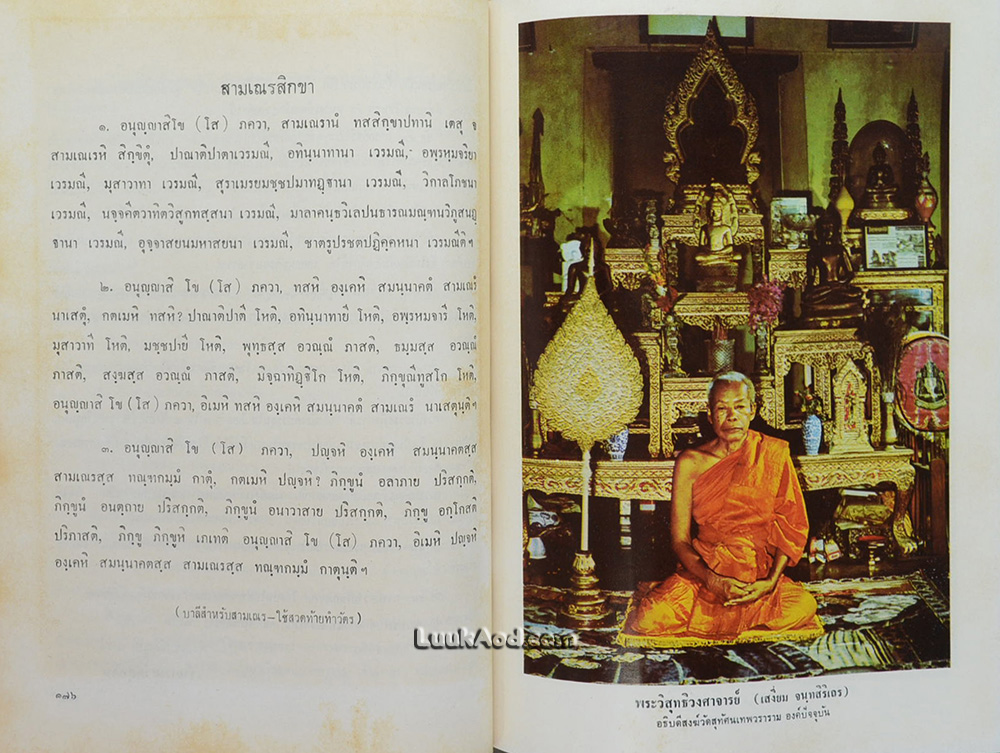 สามเณรสิกขา
๑. อนุญฺญาสิโข (โส) ภควา, สามเณรานํ ทสสิกฺขาปทานิ เตสุ จ
สามเณเรหิ สิกฺขิตุํ, ปาณาติปาตาเวรมณี, อทินฺนาทานา เวรมณี, อพฺรหฺมจริยา
เวรมณี, มุสาวาทา เวรมณี, สุราเมรยมชฺชปมาทฏฺฐานา เวรมณี, วิกาลโภชนา
เวรมณี, นจฺจคีตวาทิตวิสูกทสฺสนา เวรมณี, มาลาคนฺธวิเลปนธารณมณฺฑนวิภูสนฏฺ
ฐานา เวรมณี, อุจฺจาสยนมหาสยนา เวรมณี, ชาตรูปรชตปฏิคฺคหนา เวรมณีติฯ
๒. อนุญฺญาสิ โข (โส) ภควา, ทสหิ องฺเคหิ สมนฺนาคตํ สามเณรํ
นาเสตุํ, กตเมหิ ทสหิ? ปาณาติปาตี โหติ, อทินฺนาทายี โหติ, อพฺรหมจารี โหติ,
มุสาวาที โหติ, มชฺชปายี โหติ, พุทฺธสฺส อวณฺณํ ภาสติ, ธมฺมสฺส อวณฺณํ
ภาสติ, สงฺฆสฺส อวณฺณํ ภาสติ, มิจฺฉาทิฏฺฐิโก โหติ, ภิกฺขุณีทูสโก โหติ,
อนุญฺญาสิ โข (โส) ภควา, อิเมหิ ทสหิ องฺเคหิ สมนฺนาคตํ สามเณรํ นาเสตุนฺติฯ
๓. อนุญฺญาสิ โข (โส) ภควา, ปญฺจหิ องฺเคหิ สมนฺนาคตสฺส
สามเณรสฺส ทณฺฑกมฺมํ กาตุํ, กตเมหิ ปญฺจหิ? ภิกฺขูนํ อลาภาย ปริสกฺกติ,
ภิกฺขูนํ อนตฺถาย ปริสกฺกติ, ภิกฺขูนํ อนาวาสาย ปริสกฺกติ, ภิกฺขู อกฺโกสติ
ปริภาสติ, ภิกฺขู ภิกฺขูหิ เภเทติ อนุญฺญาสิ โข (โส) ภควา, อิเมหิ ปญฺจหิ
องฺเคหิ สมนฺนาคตสฺส สามเณรสฺส ทณฺฑกมฺมํ กาตุนฺติฯ
(บาลีสำหรับสามเณร–ใช้สวดท้ายทำวัตร)
๑๗๖
พระวิสุทธิวงศาจารย์ (เสงี่ยม จนฺทสิริเถร)
อธิบดีสงฆ์วัดสุทัศนเทพวราราม องค์ปัจจุบัน
LuukAod.com